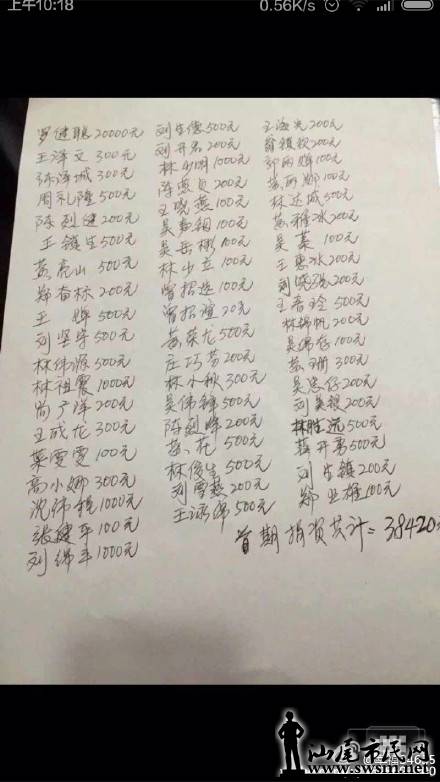 上午10:18
0.56K/s
罗健聪20000元
王泽文 300元
张泽城 300元
周礼隆 500元
陈烈健 200元
王镇生 500元
黄亮山 500元
郑奋标 200元
王 婵 500元
刘坚守 500元
林伟源 500元
林祖震 1000元
尚广洋 200元
王成龙 300元
叶雯雯 100元
高小娜 300元
沈伟程 1000元
张健平 100元
刘绵平 1000元
刘生德 500元
刘开名 200元
林少明 1000元
陈惠贞 200元
王晓燕 100元
吴 100元
吴岳彬 100元
林少立 100元
曾招选 100元
曾招谊 20元
黄荣龙 500元
庄巧芳 200元
林小秋 300元
吴伟锋 500元
陈烈峰 200元
黄小花 500元
林俊生 500元
刘雪燕 200元
王泳锦 500元
王海光 200元
翁镇钦 200元
郭丽婵 100元
黄丽娜 100元
林达城 500元
黄雅冰 200元
吴蓁 100元
王惠冰 200元
刘晓强 200元
王春玲 500元
林锦帆 200元
吴伟存 100元
黄珊 300元
吴忠存 200元
刘美银 200元
林胜远 500元
蔡开高 500元
刘生镇 200元
郑业雄 100元
首期捐资共计=38420元
汕尾市民网
www.swsm.net